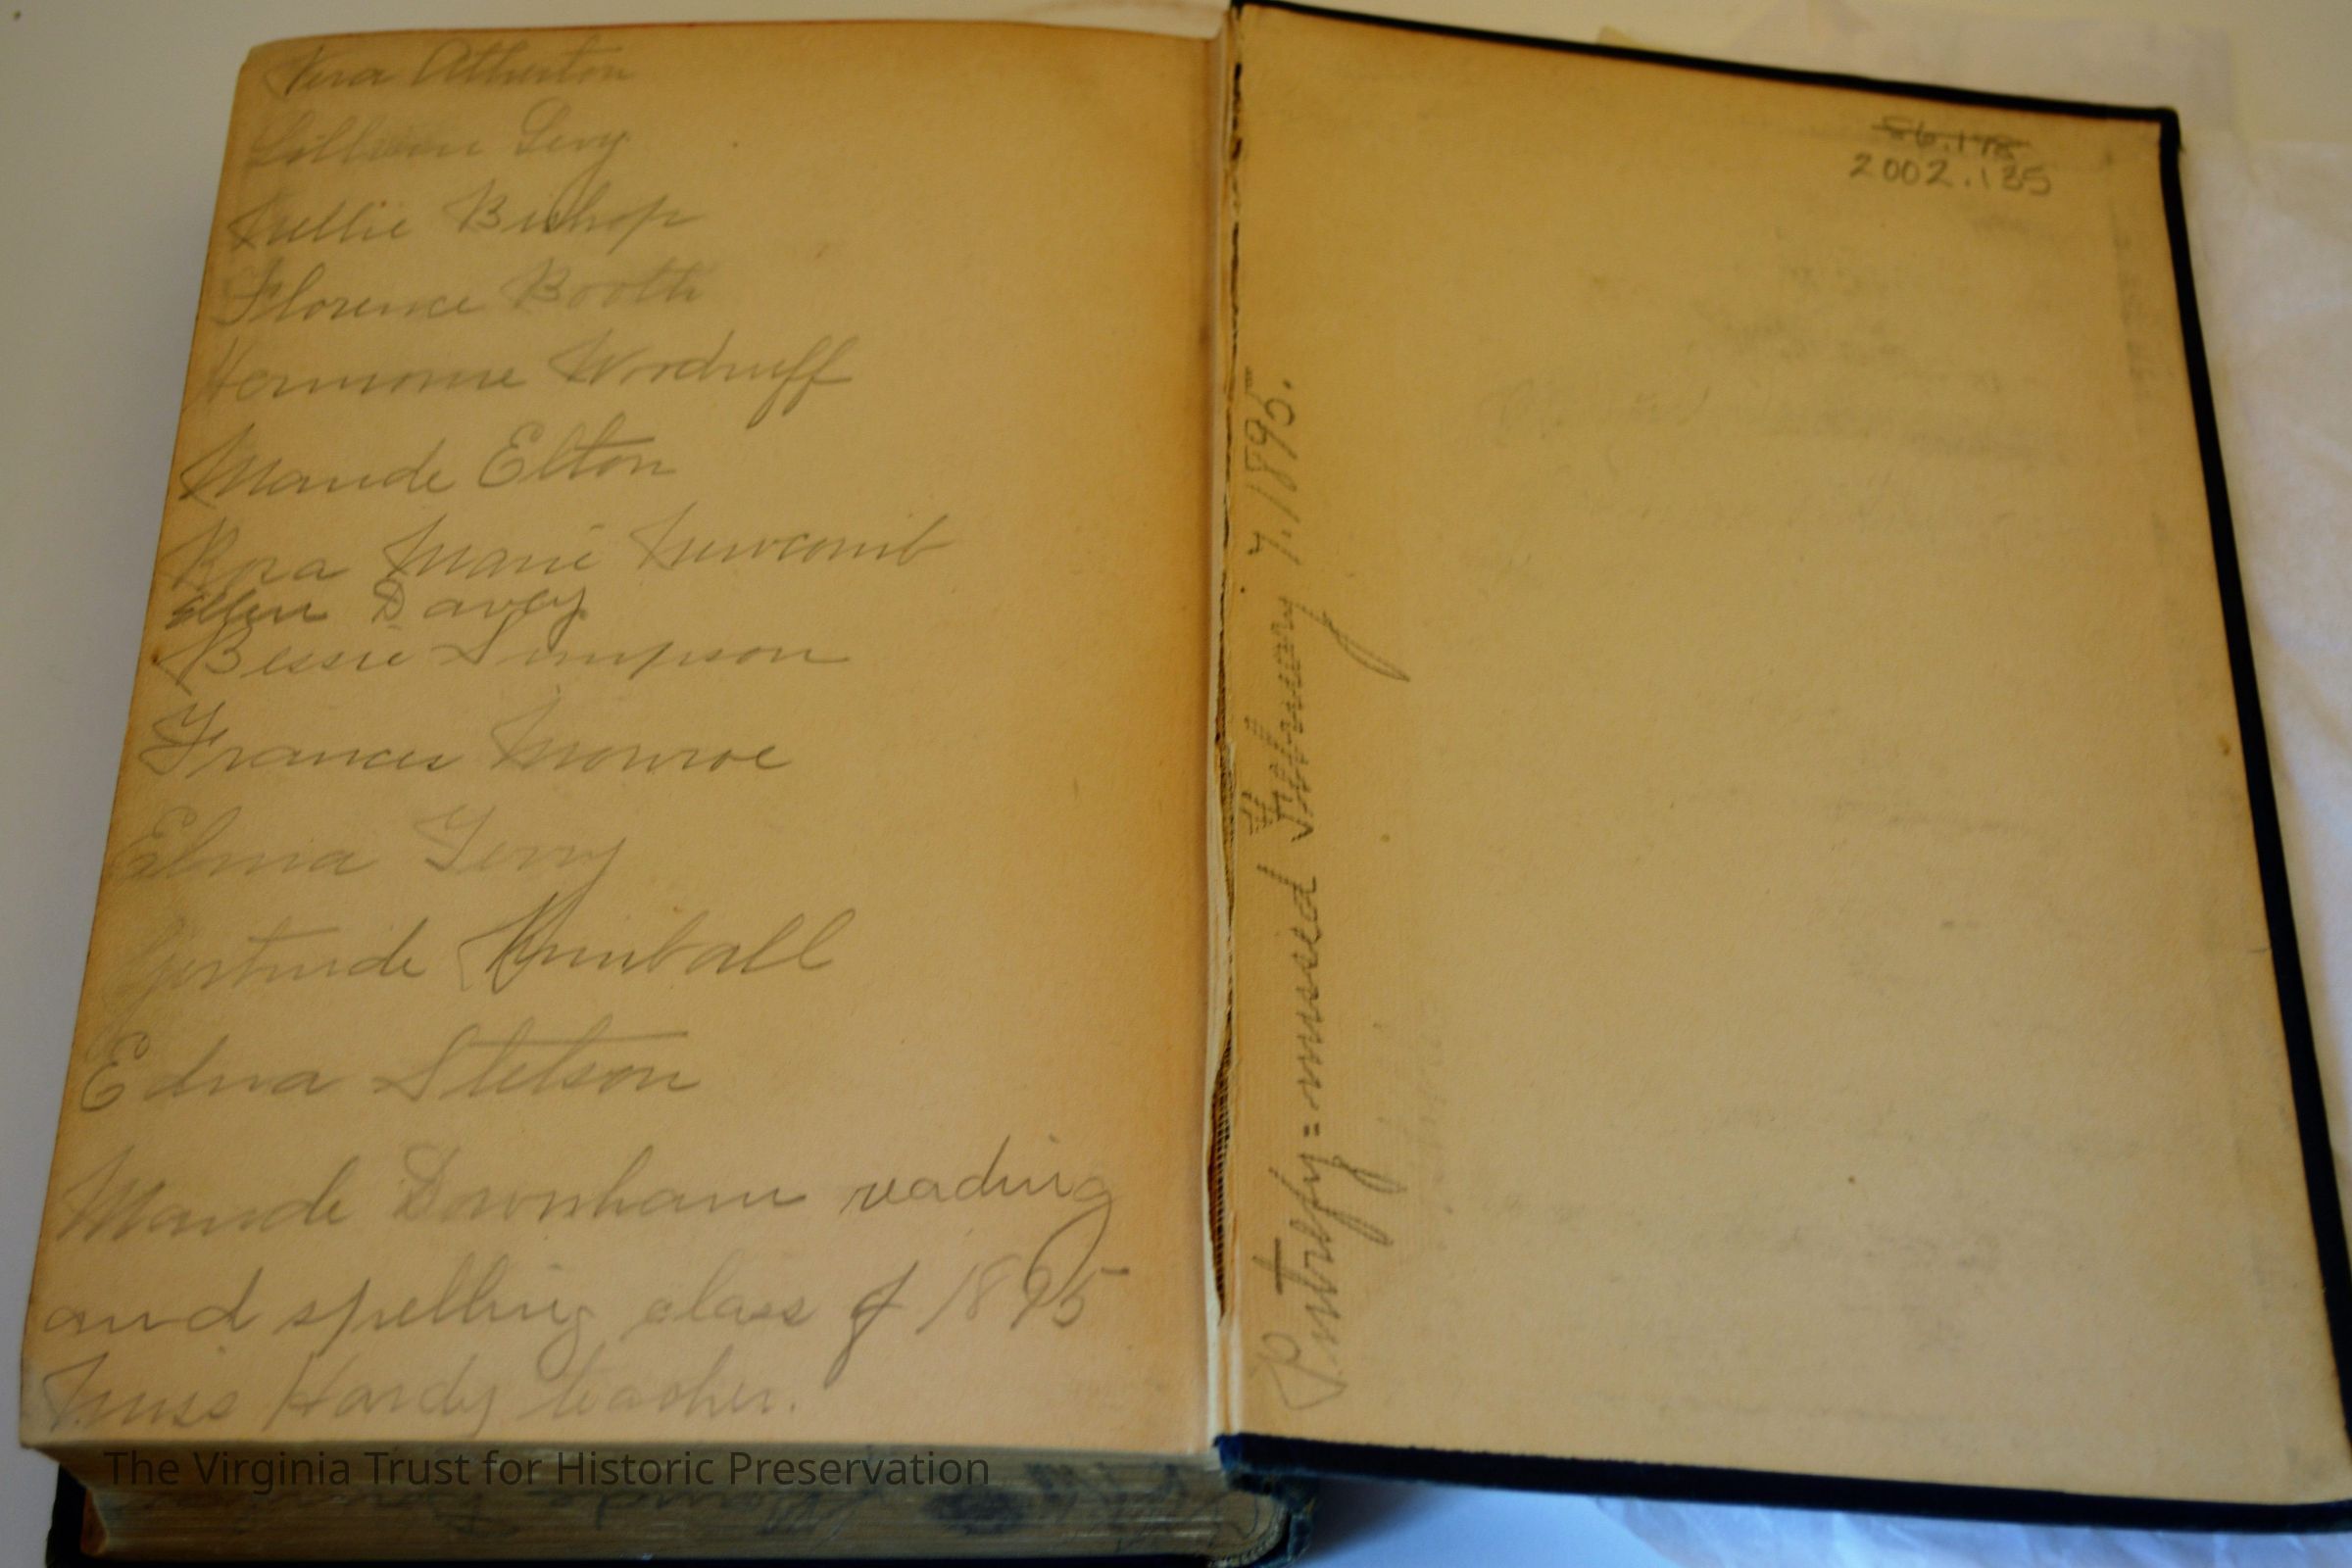 Vera Atherton
Lillian Levy
Nellie Bishop
Florence Booth
Hermione Woodruff
Maude Elton
Rosa Marie Newcomb
Ellen Davey
Bessie Simpson
Frances Monroe
Elma Terry
Gertrude Kimball
Edna Stetson
Maude Downham reading
and spelling class of 1895
Miss Hardy teacher.
Putrefy=missed February 7. 1895.
86.178
2002.135
The Virginia Trust for Historic Preservation